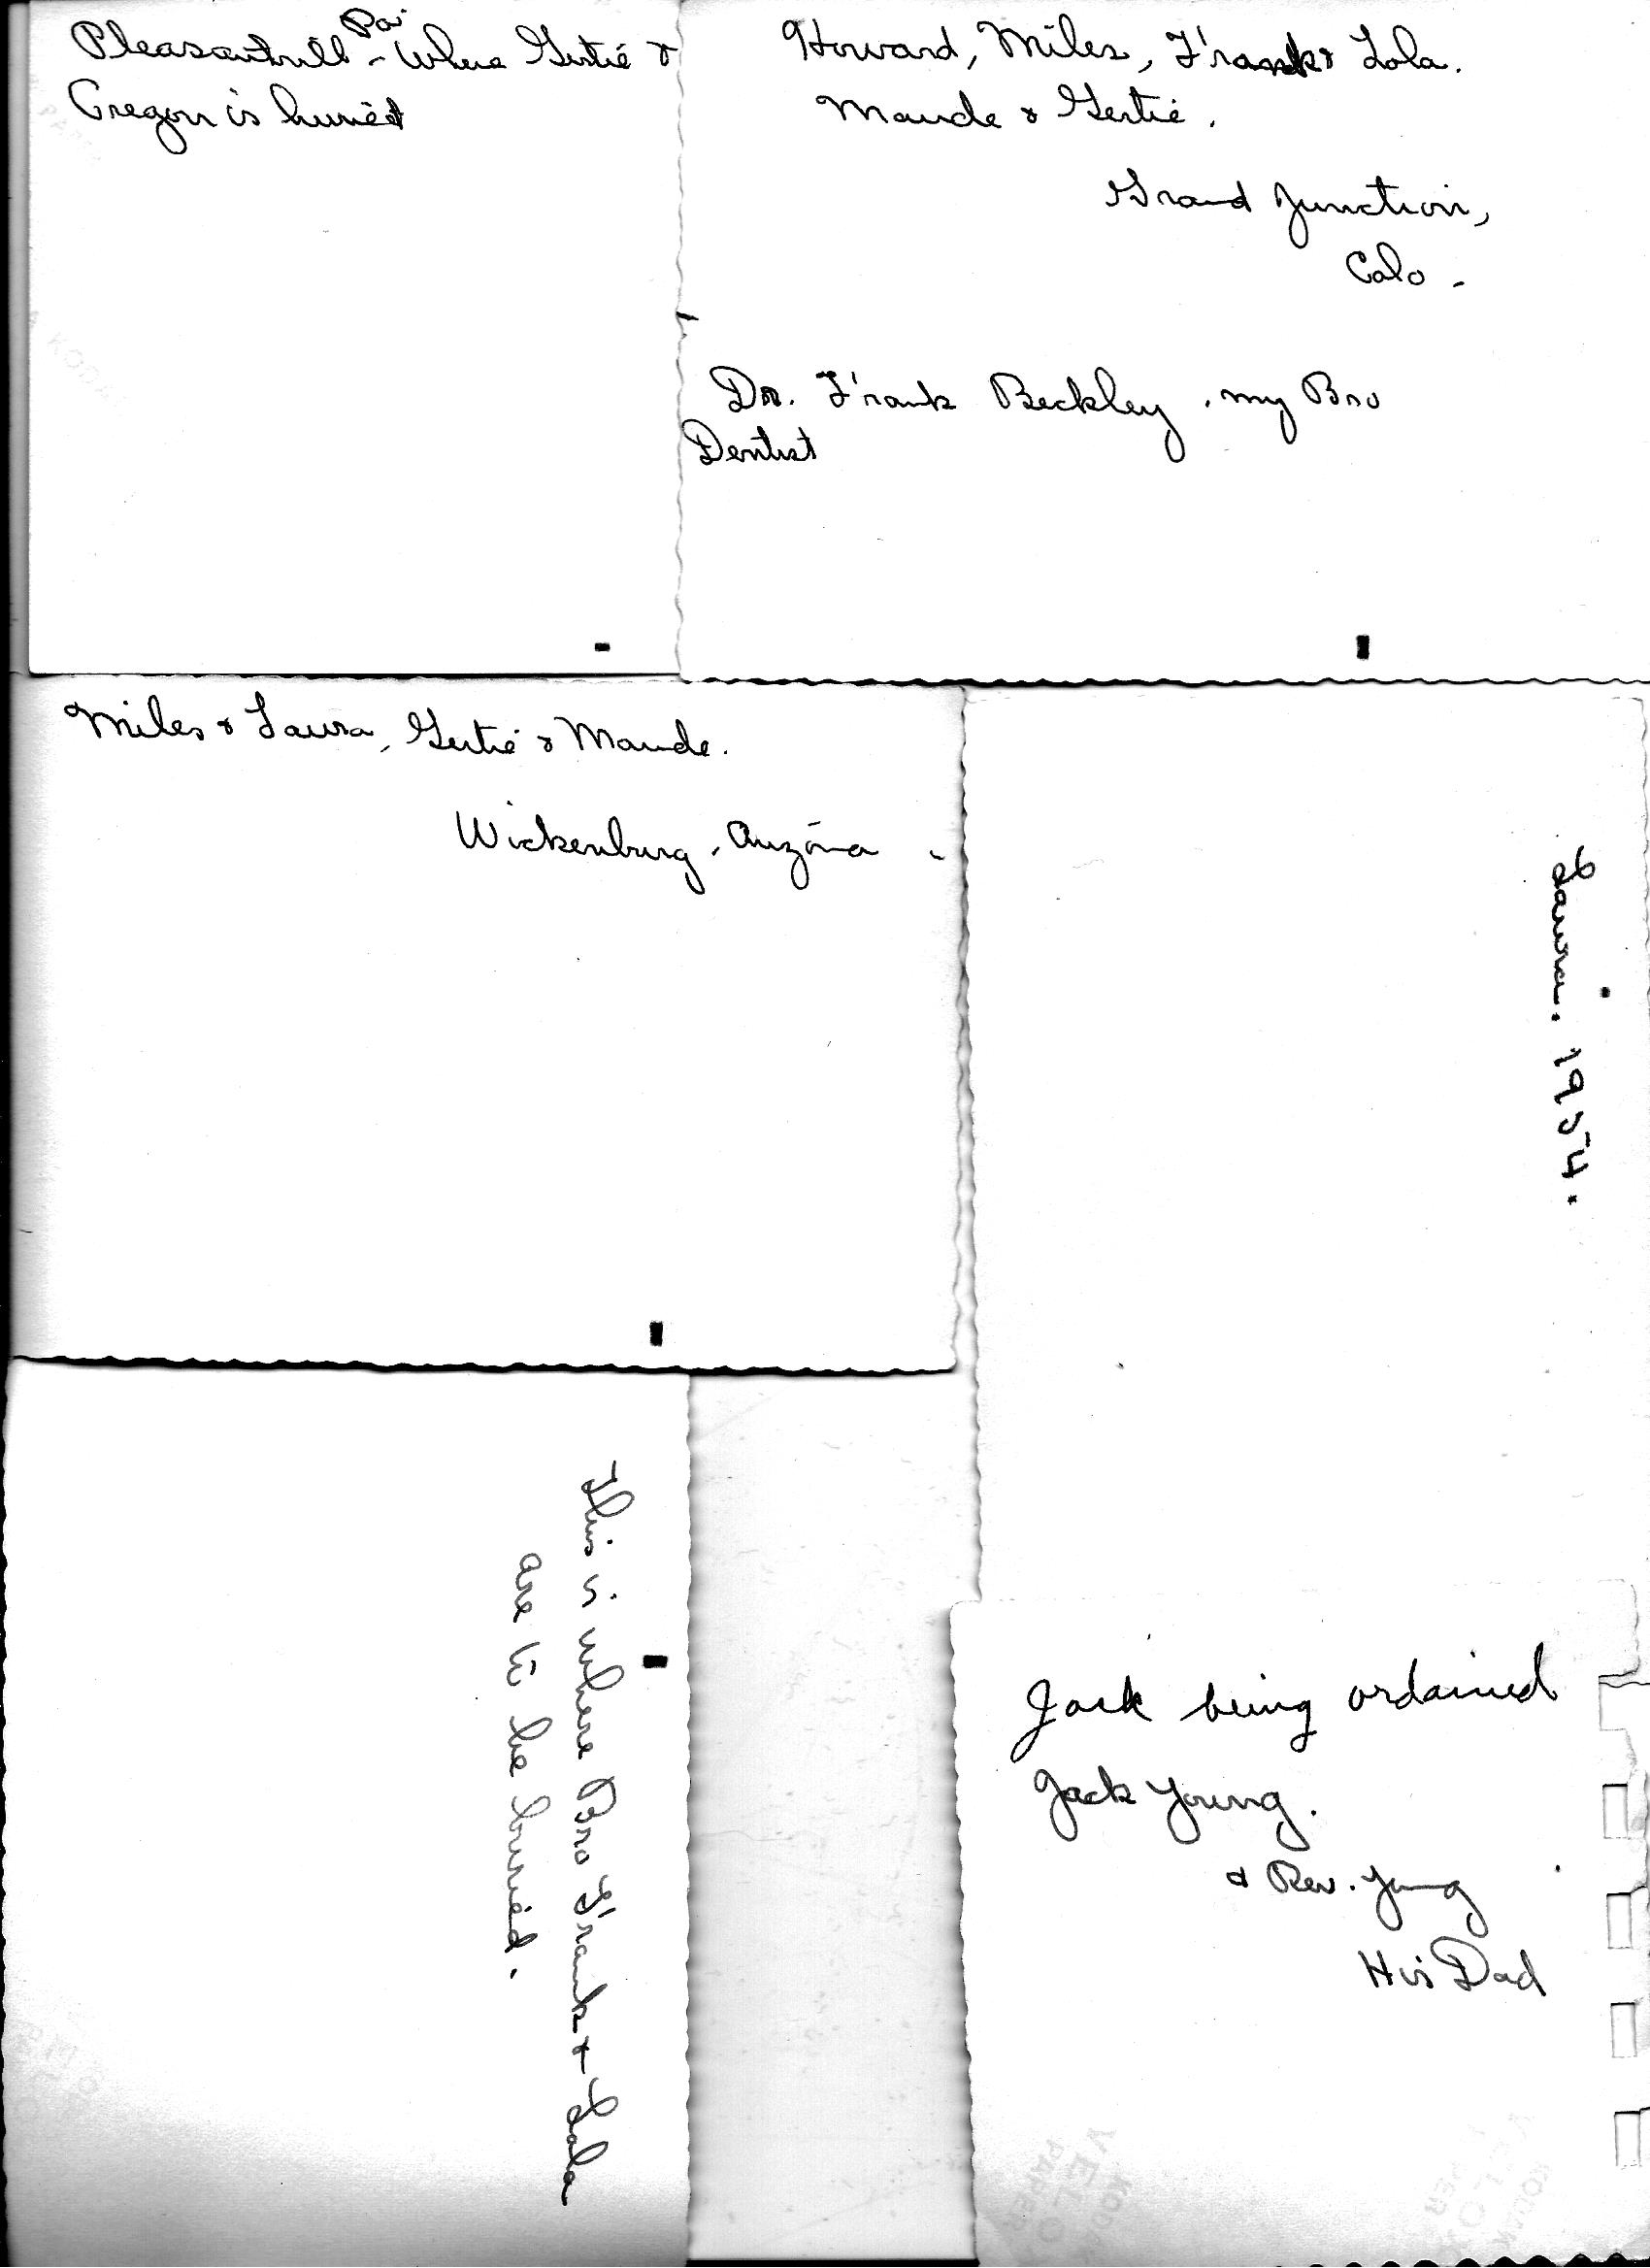 Pleasanthill Pa. - Where Gertie &
Oregon is buried
Howard, Miles, Frank & Lola.
Maude & Gertie.
Grand Junction,
Colo -
Dr. Frank Beckley . my Bro
Dentist
Miles & Laura, Gertie & Maude.
Wickenburg, Arizona -
Laura. 1954.
This is where Bro Frank & Lola
are to be buried.
Jack being ordained
Jack Young.
& Rev. Young
His Dad
KODAK
VELOX
PAPER